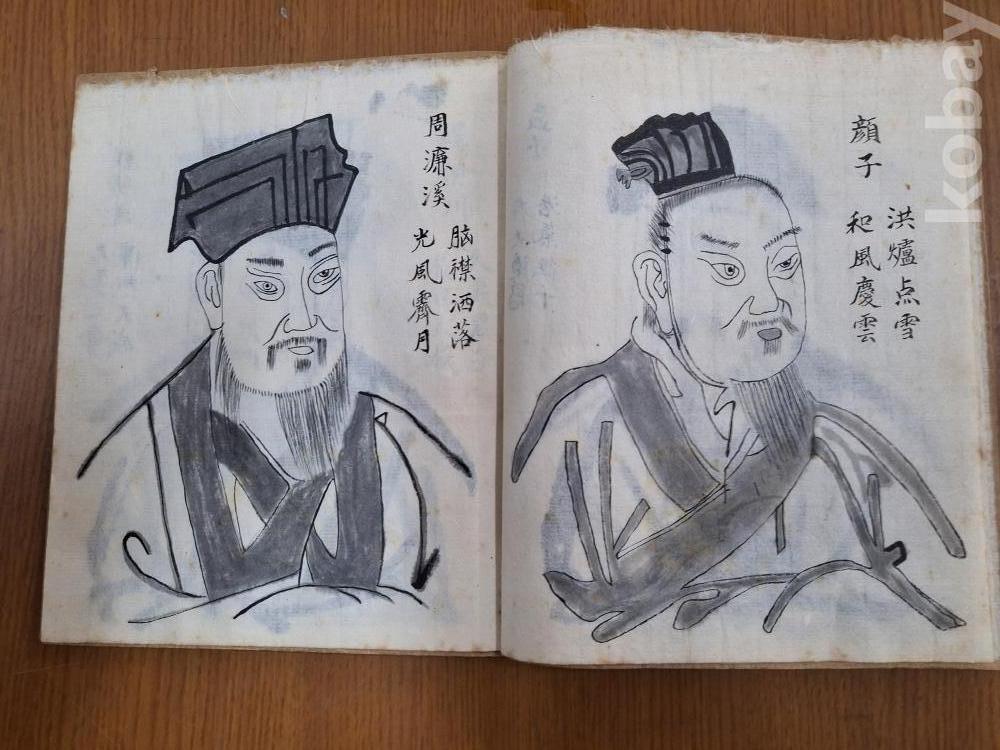 顔子
洪爐点雪
和風慶雲
周濂溪
脑襟洒落
光風霽月
kobay